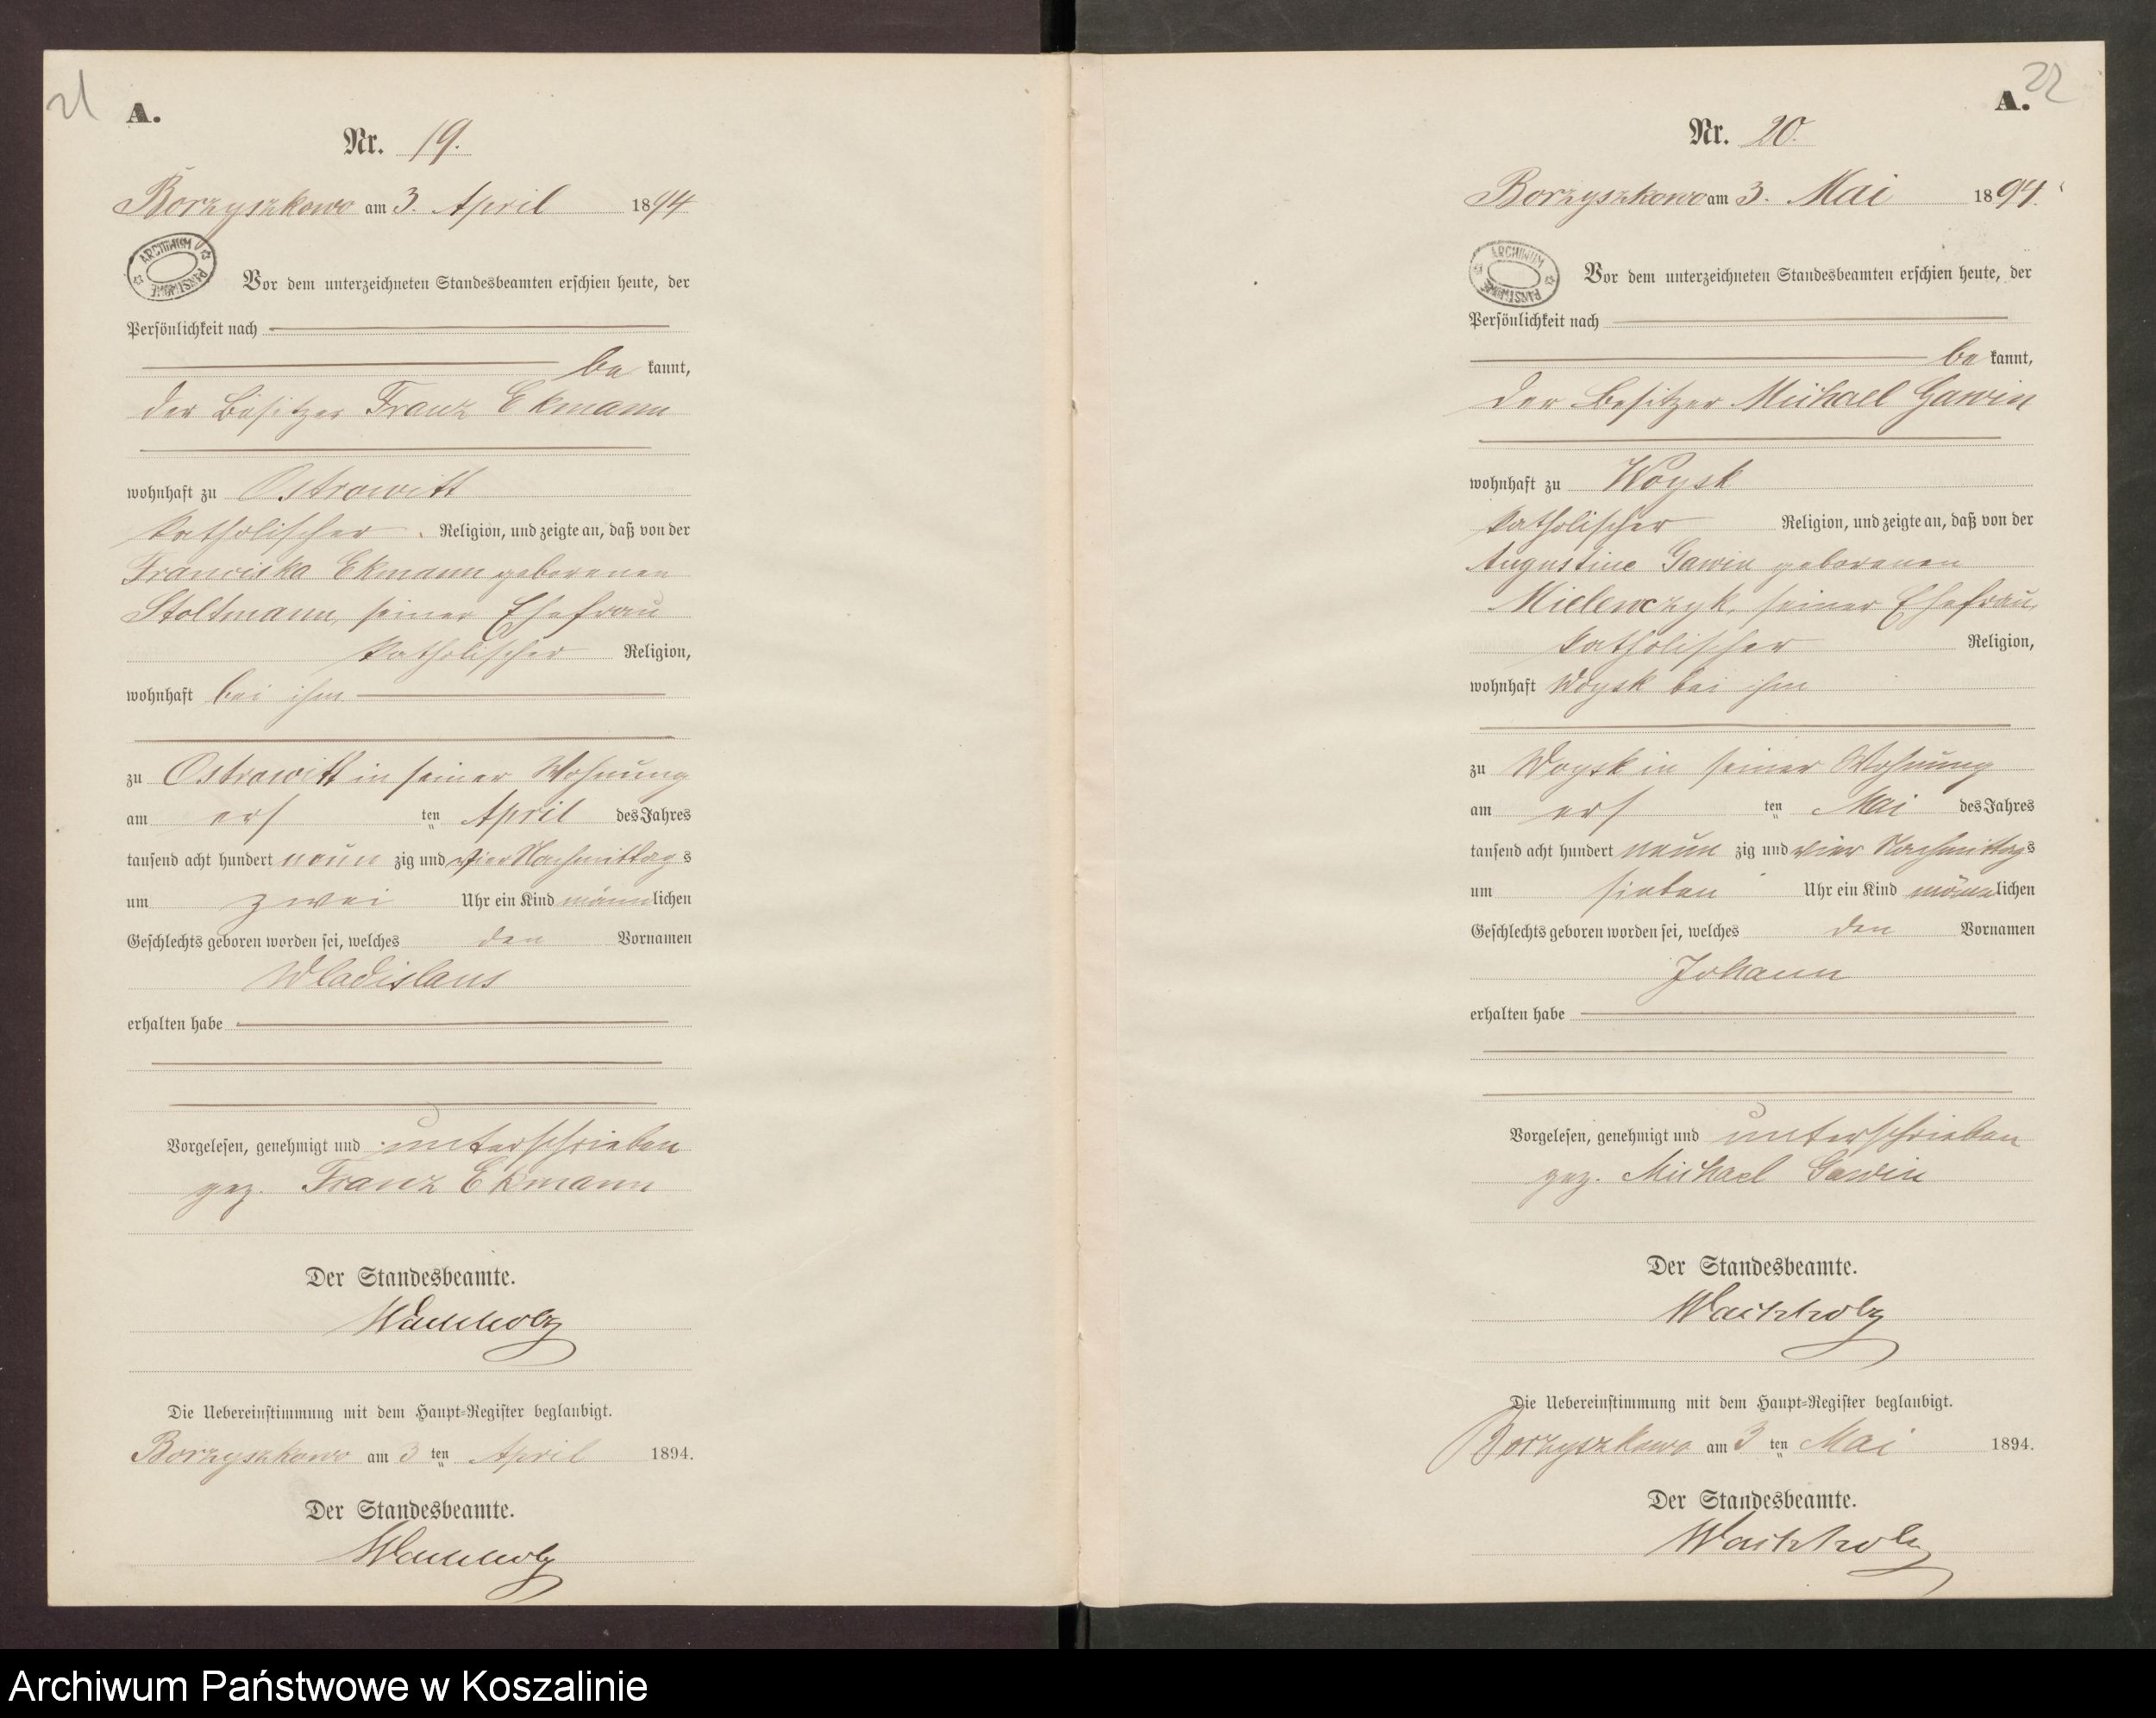 21
A.
Nr. 19.
Borzyszkowo am 3. April 1894
ARCHIWUM PAŃSTWOWE
Vor dem unterzeichneten Standesbeamten erschien heute, der
Persönlichkeit nach
be kannt,
der Besitzer Franz Ekmann
wohnhaft zu Ostrowitt
katholischer Religion, und zeigte an, daß von der
Franciska Ekmann geborenen
Stoltmann, seiner Ehefrau
katholischer Religion,
wohnhaft bei ihm
zu Ostrowitt in seiner Wohnung
am ers ten April des Jahres
tausend acht hundert neun zig und vier Nachmittag s
um zwei Uhr ein Kind männ lichen
Geschlechts geboren worden sei, welches den Vornamen
Wladislaus
erhalten habe
Vorgelesen, genehmigt und unterschrieben
gez. Franz Ekmann
Der Standesbeamte.
Die Uebereinstimmung mit dem Haupt-Register beglaubigt.
Borzyszkowo am 3 ten April 1894.
Der Standesbeamte.
22
A.
Nr. 20.
Borzyszkowo am 3. Mai 1894.
ARCHIWUM PAŃSTWOWE
Vor dem unterzeichneten Standesbeamten erschien heute, der
Persönlichkeit nach
be kannt,
der Besitzer Michael Gawin
wohnhaft zu Woysk
katholischer Religion, und zeigte an, daß von der
Augustine Gawin geborenen
Mielewczyk, seiner Ehefrau,
katholischer Religion,
wohnhaft Woysk bei ihm
zu Woysk in seiner Wohnung
am ers ten Mai des Jahres
tausend acht hundert neun zig und vier Nachmittag s
um sieben Uhr ein Kind männ lichen
Geschlechts geboren worden sei, welches den Vornamen
Johann
erhalten habe
Vorgelesen, genehmigt und unterschrieben
gez. Michael Gawin
Der Standesbeamte.
Die Uebereinstimmung mit dem Haupt-Register beglaubigt.
Borzyszkowo am 3 ten Mai 1894.
Der Standesbeamte.
Archiwum Państwowe w Koszalinie